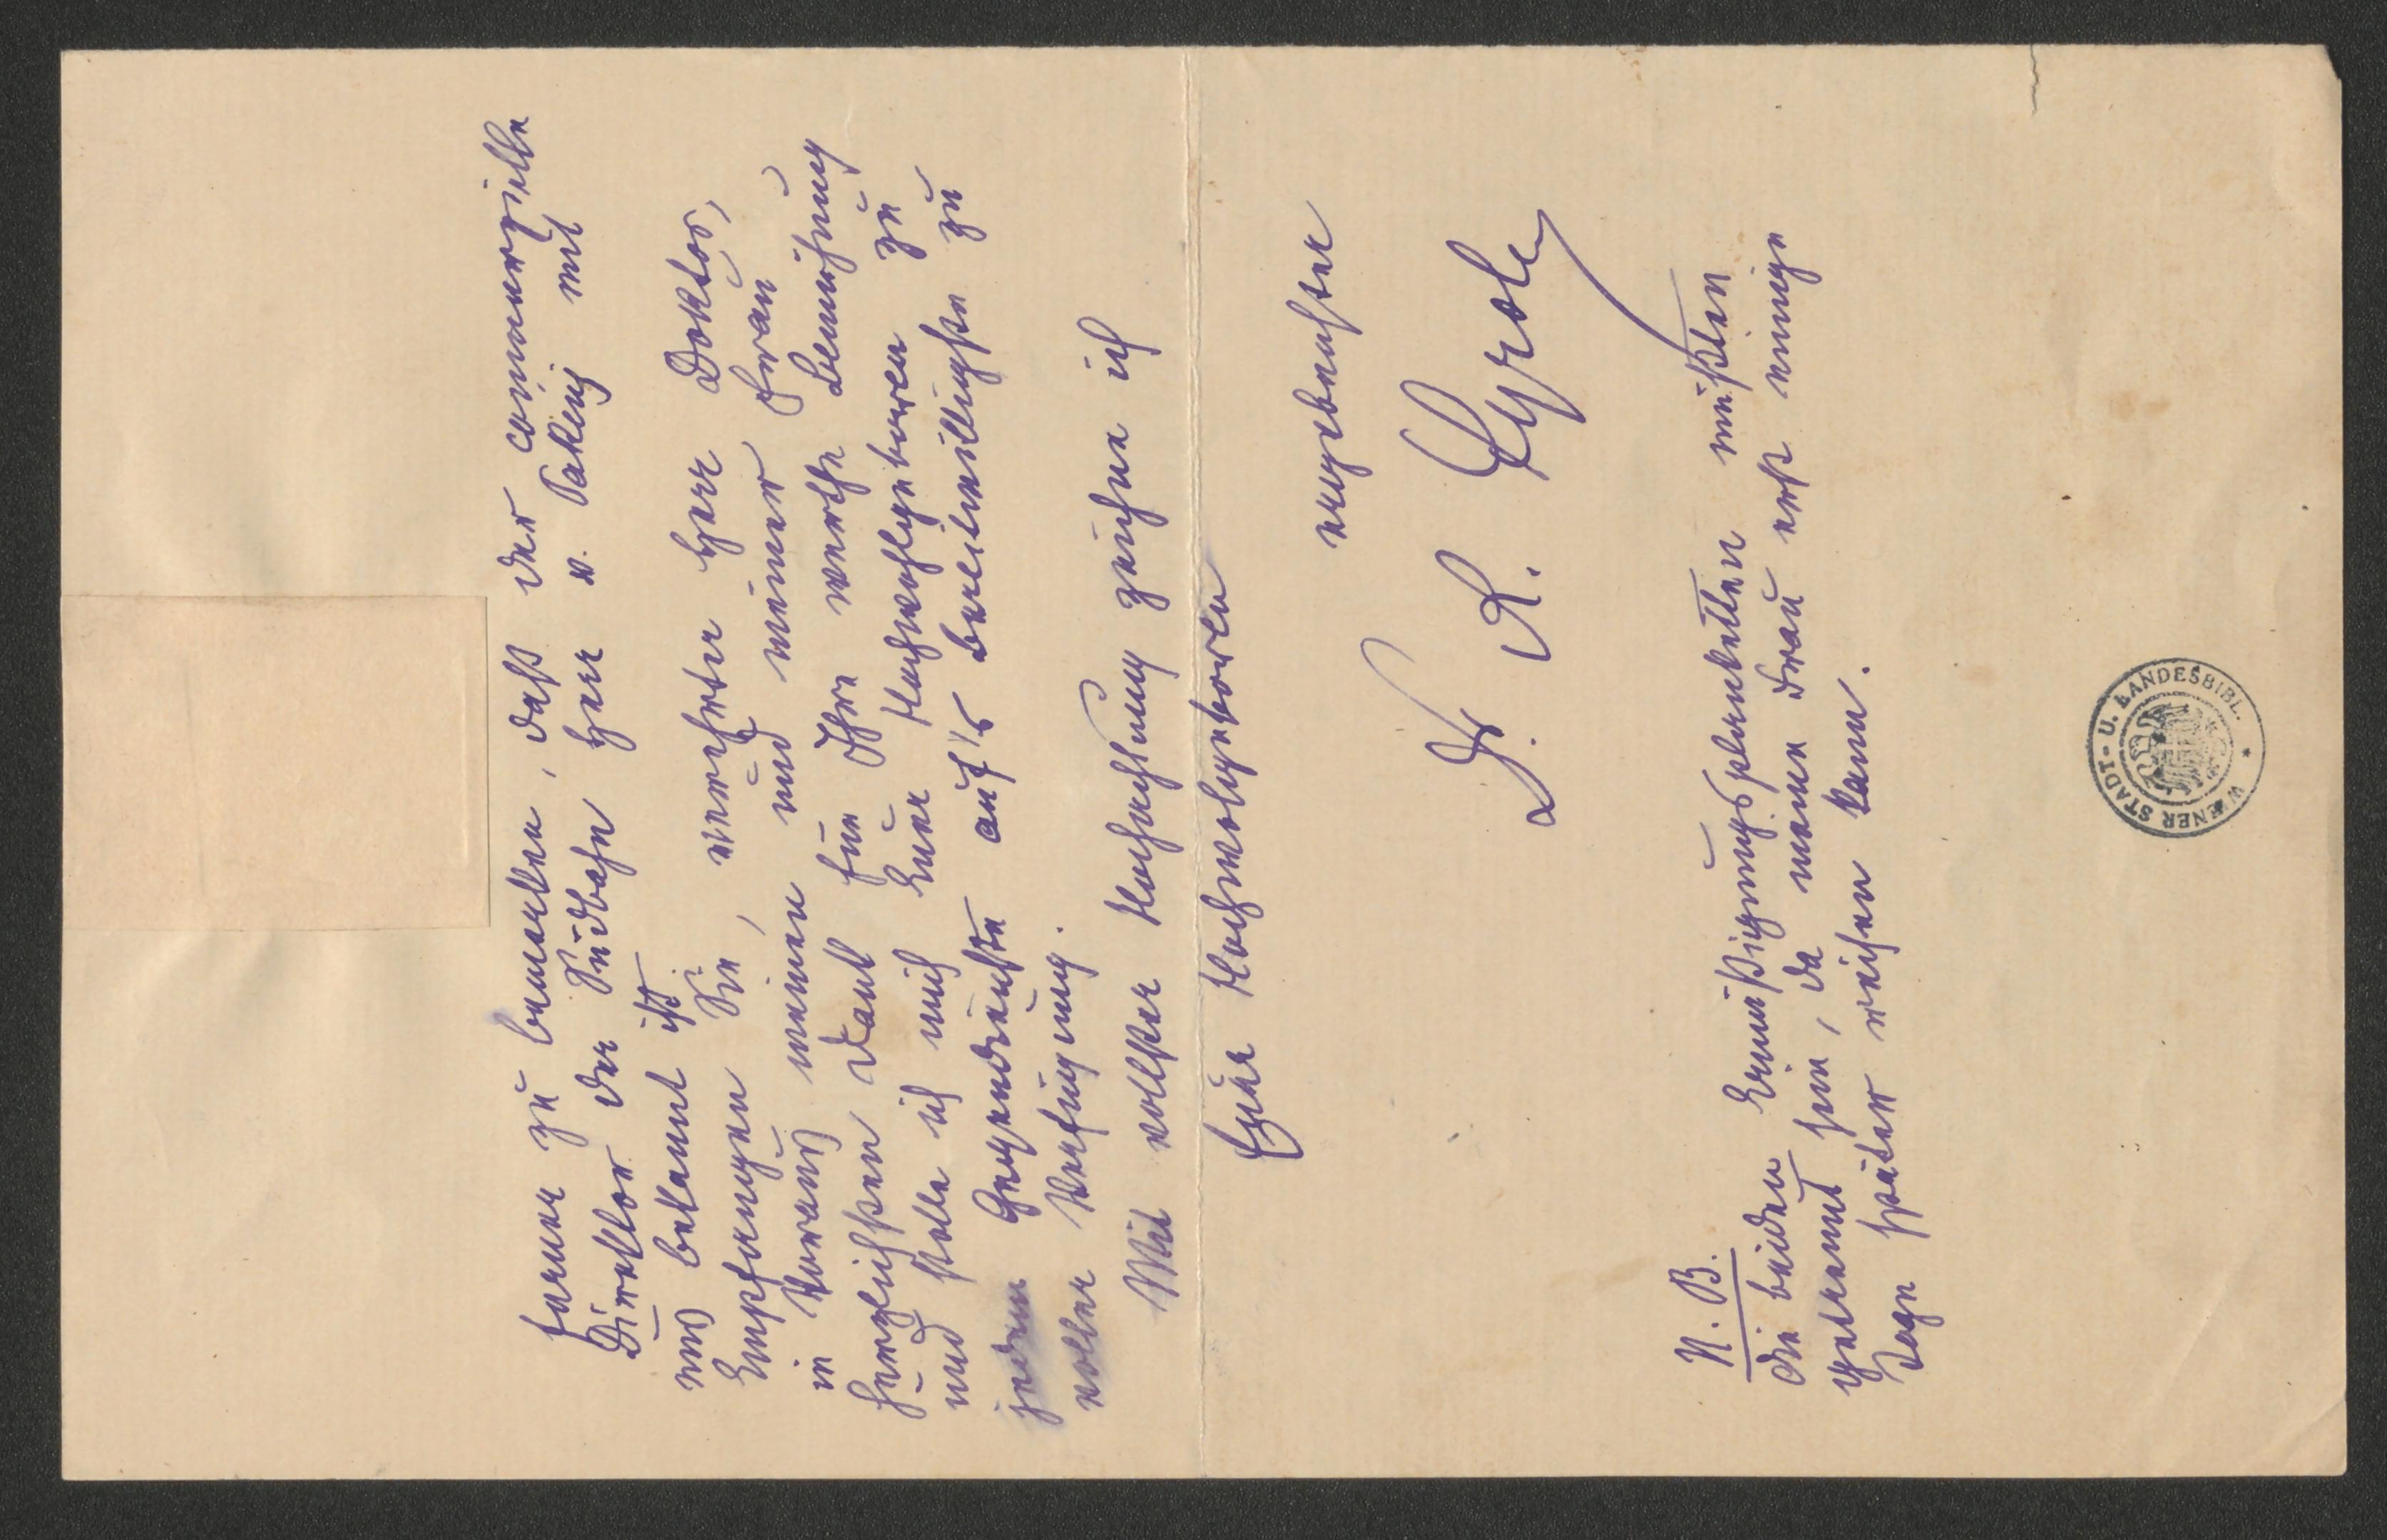 ferner zu bemerken, daß der commerzielle
Direktor der Südbahn Herr v. Pakeny mit
uns bekannt ist.
Empfangen Sie, verehrter Herr Doktor,
in Voraus meinen und meiner Frau
herzlichsten Dank für Ihre werthe Bemühung
und stelle ich mich Euer Hochwohlgeboren zu
jedem Gegendienste auf's bereitwilligste zu
voller Verfügung.
Mit vollster Hochachtung zeichne ich
Euer Hochwohlgeboren
ergebenster
Dr. R.
N. B.
Die beiden Ermäßigungsplanketten müßten
getrennt sein, da meine Frau erst einige
Tage später reisen kann.
WIENER STADT- U. LANDESBIBL. *